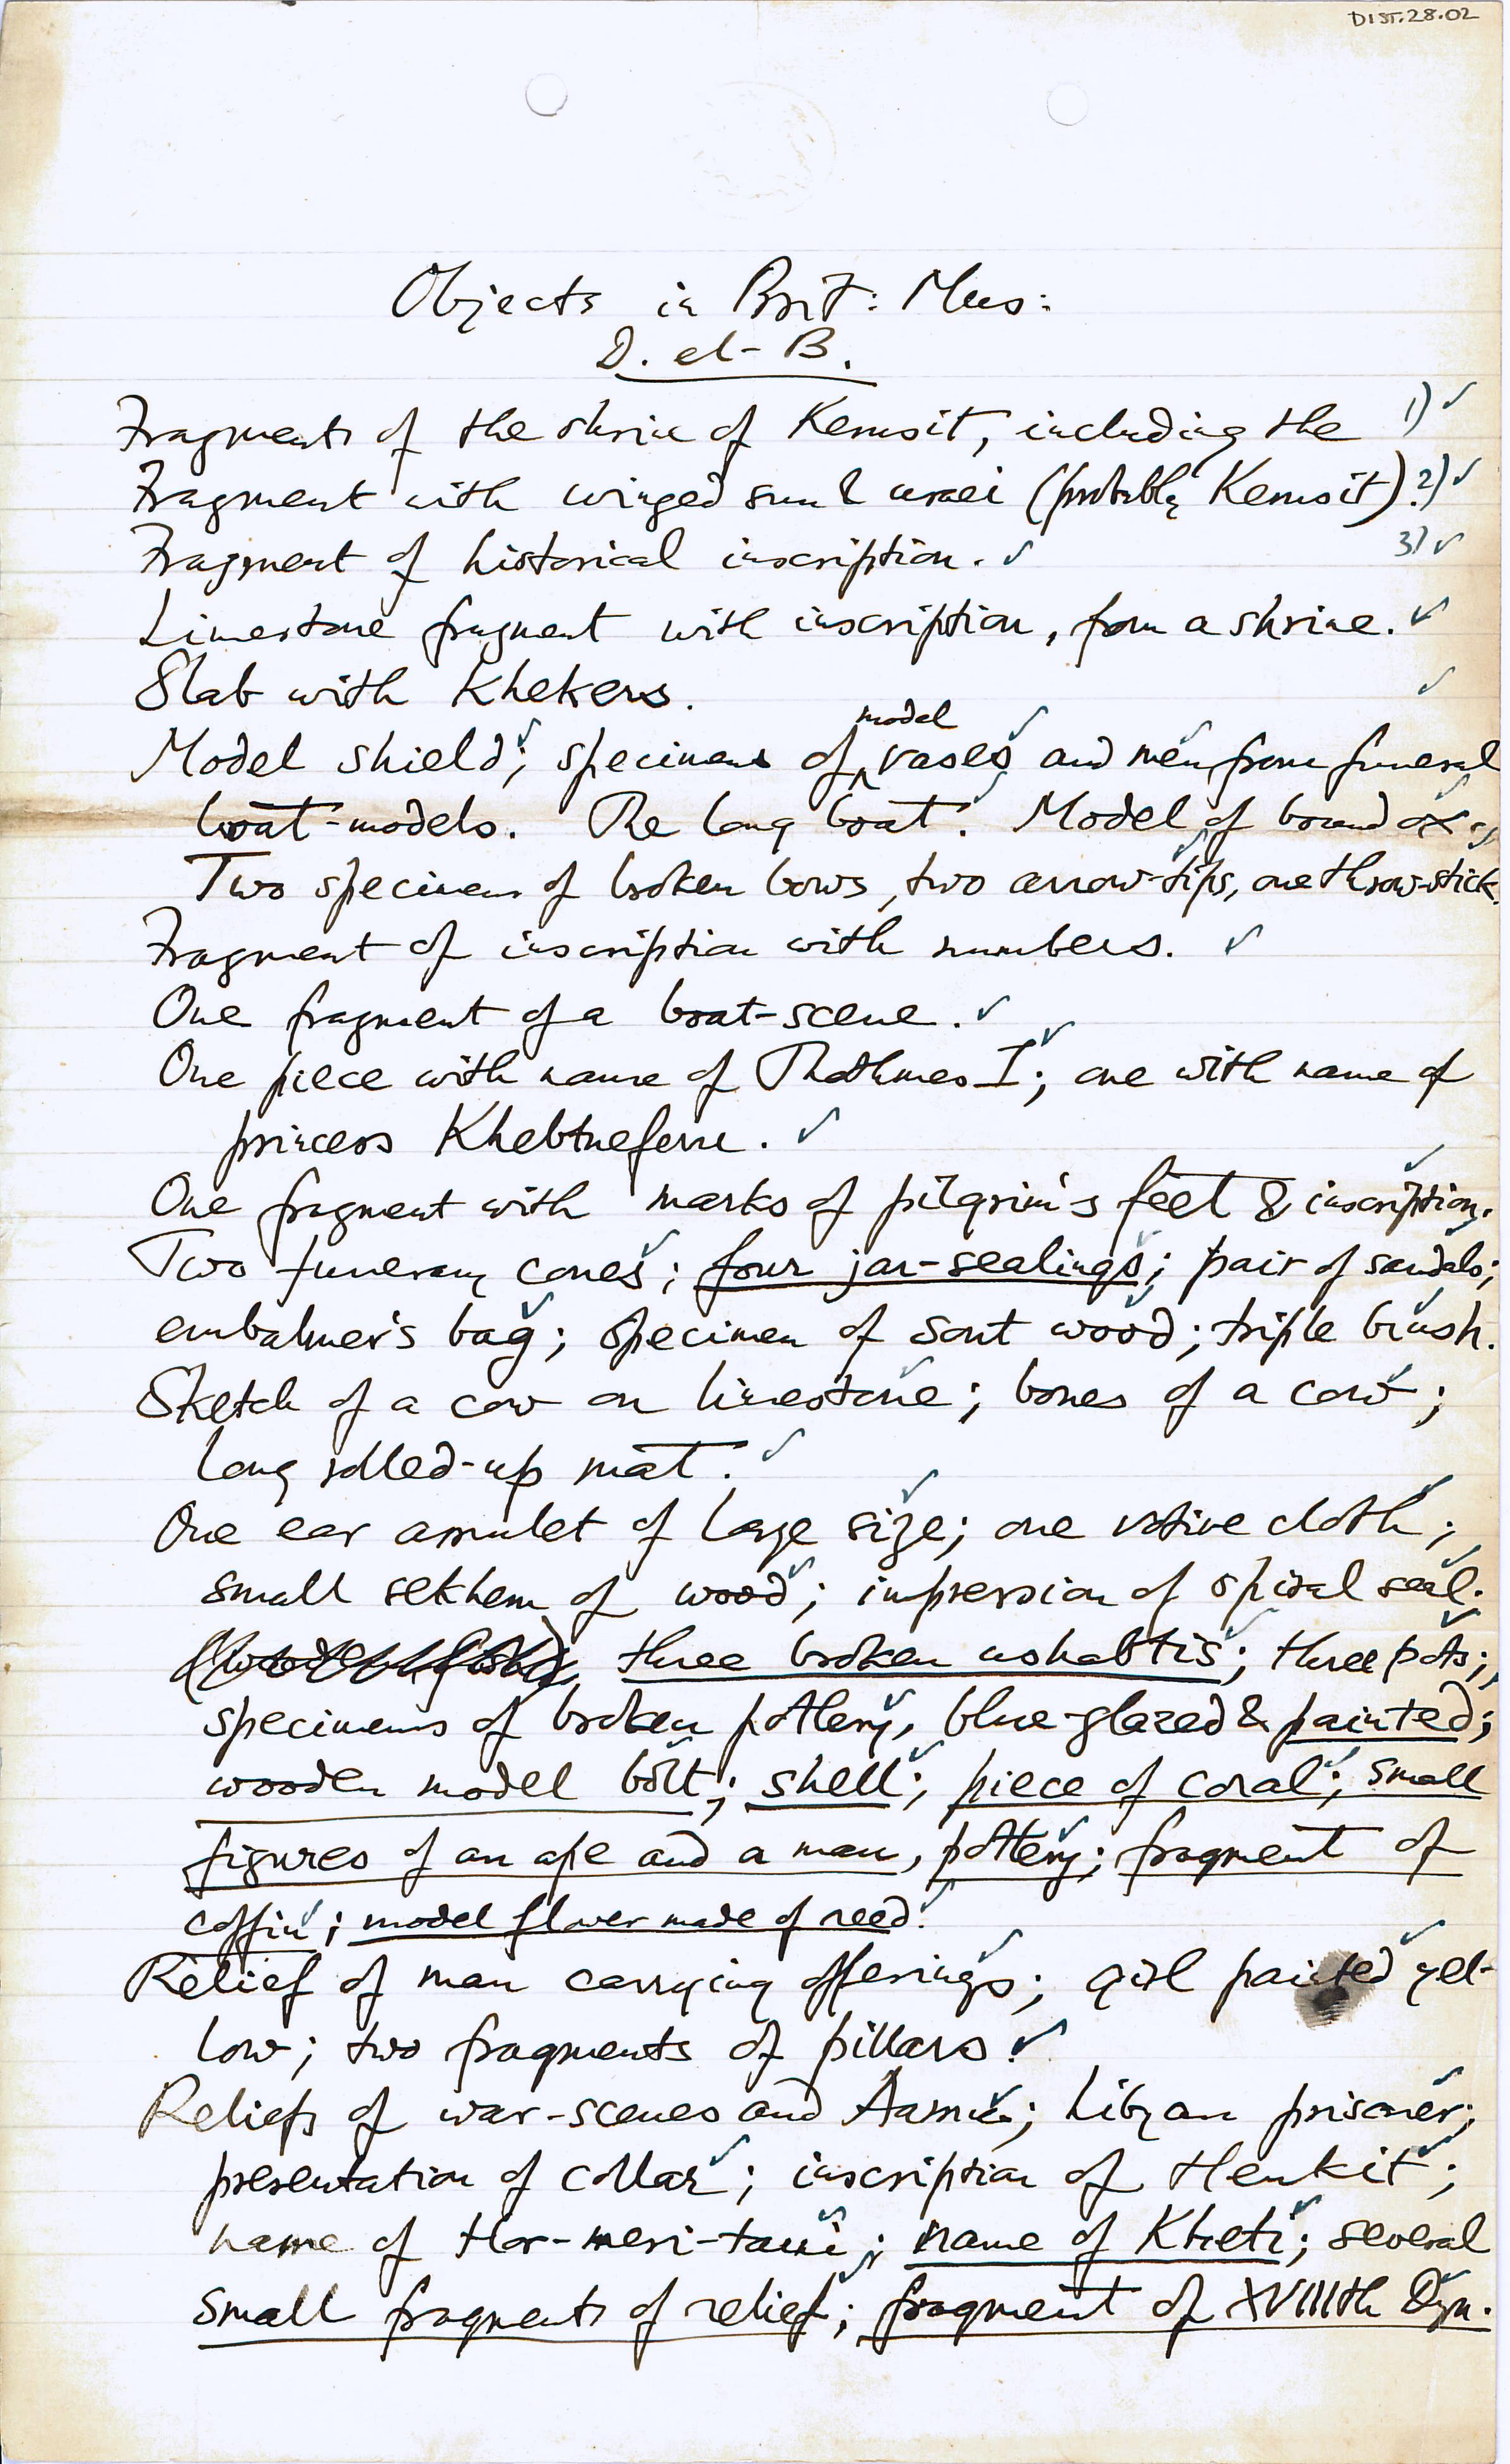 DIST.28.02
Objects in Brit: Mus:
D. el-B.
Fragments of the shrine of Kemsit, including the 1) ✓
Fragment with winged sun & uraei (probably Kemsit). 2) ✓
Fragment of historical inscription. ✓ 3) ✓
Limestone fragment with inscription, from a shrine. ✓
Slab with Khekers. ✓
model
Model shield; specimens of vases and men from funeral
boat-models. The long boat. Model of bound ox.
Two specimens of broken bows, two arrow-tips, one throw-stick.
Fragment of inscription with numbers. ✓
One fragment of a boat-scene. ✓
One piece with name of Thothmes I; one with name of
princess Khebtneferu. ✓
One fragment with marks of pilgrim's feet & inscription.
Two funerary cones; four jar-sealings; pair of sandals;
embalmer's bag; specimen of sont wood; triple brush.
Sketch of a cow on limestone; bones of a cow;
long rolled-up mat. ✓
One ear amulet of large size; one votive cloth;
small sekhem of wood; impression of spiral seal.
three broken ushabtis; three pots;
specimens of broken pottery, blue-glazed & painted;
wooden model bolt; shell; piece of coral; small
figures of an ape and a man, pottery; fragment of
coffin; model flower made of reed.
Relief of man carrying offerings; girl painted yel-
low; two fragments of pillars. ✓
Reliefs of war-scenes and Aamu; Libyan prisoner;
presentation of collar; inscription of Henhit;
name of Hor-meri-taui; name of Kheti; several
small fragments of relief; fragment of XVIIIth Dyn.